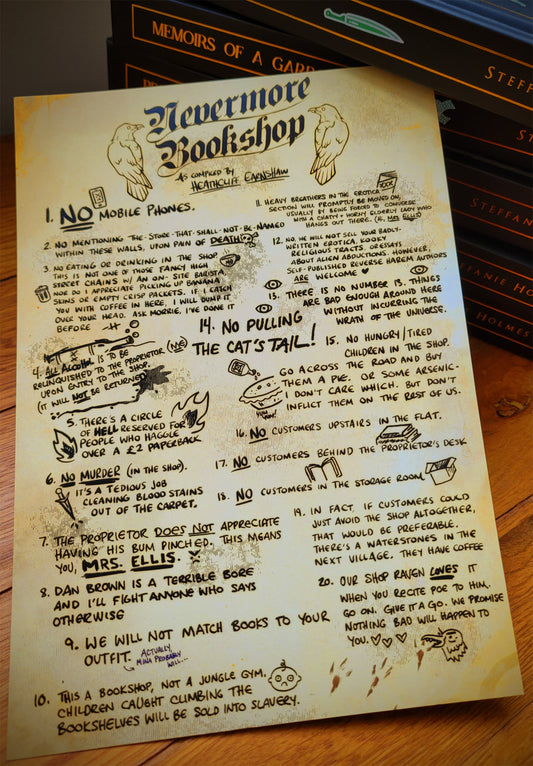 MEMOIRS OF A GAR
STEFFA
STEFFAN
STEFFANIE HO
HOLMES
Nevermore
Bookshop
AS COMPILED BY
HEATHCLIFF EARNSHAW
1. NO MOBILE PHONES.
2. NO MENTIONING THE-STORE-THAT-SHALL-NOT-BE-NAMED
WITHIN THESE WALLS, UPON PAIN OF DEATH
3. NO EATING OR DRINKING IN THE SHOP.
THIS IS NOT ONE OF THOSE FANCY HIGH
STREET CHAINS W/ AN ON-SITE BARISTA
NOR DO I APPRECIATE PICKING UP BANANA
SKINS OR EMPTY CRISP PACKETS. IF I CATCH
YOU WITH COFFEE IN HERE, I WILL DUMP IT
OVER YOUR HEAD. ASK MORRIE, I'VE DONE IT
BEFORE -H
4. ALL ALCOHOL IS TO BE
RELINQUISHED TO THE PROPRIETOR (ME)
UPON ENTRY TO THE SHOP.
(IT WILL NOT BE RETURNED)
5. THERE'S A CIRCLE
OF HELL RESERVED FOR
PEOPLE WHO HAGGLE
OVER A £2 PAPERBACK
6. NO MURDER (IN THE SHOP).
IT'S A TEDIOUS JOB
CLEANING BLOOD STAINS
OUT OF THE CARPET.
7. THE PROPRIETOR DOES NOT APPRECIATE
HAVING HIS BUM PINCHED. THIS MEANS
YOU, MRS. ELLIS.
8. DAN BROWN IS A TERRIBLE BORE
AND I'LL FIGHT ANYONE WHO SAYS
OTHERWISE
9. WE WILL NOT MATCH BOOKS TO YOUR
OUTFIT. ACTUALLY,
MINA PROBABLY
WILL...
10. THIS A BOOKSHOP, NOT A JUNGLE GYM.
CHILDREN CAUGHT CLIMBING THE
BOOKSHELVES WILL BE SOLD INTO SLAVERY.
11. HEAVY BREATHERS IN THE EROTICA
SECTION WILL PROMPTLY BE MOVED ON,
USUALLY BY BEING FORCED TO CONVERSE
WITH A CHATTY + HORNY ELDERLY LADY WHO
HANGS OUT THERE. (HI, MRS ELLIS)
12. NO, WE WILL NOT SELL YOUR BADLY-
WRITTEN EROTICA, KOOKY
RELIGIOUS TRACTS, OR ESSAYS
ABOUT ALIEN ABDUCTIONS. HOWEVER,
SELF-PUBLISHED REVERSE HAREM AUTHORS
ARE WELCOME ♥
13. THERE IS NO NUMBER 13. THINGS
ARE BAD ENOUGH AROUND HERE
WITHOUT INCURRING THE
WRATH OF THE UNIVERSE.
14. NO PULLING
THE CAT'S TAIL!
15. NO HUNGRY/TIRED
CHILDREN IN THE SHOP.
GO ACROSS THE ROAD AND BUY
THEM A PIE. OR SOME ARSENIC.
I DON'T CARE WHICH. BUT DON'T
INFLICT THEM ON THE REST OF US.
16. NO CUSTOMERS UPSTAIRS IN THE FLAT.
17. NO CUSTOMERS BEHIND THE PROPRIETOR'S DESK
18. NO CUSTOMERS IN THE STORAGE ROOM
19. IN FACT, IF CUSTOMERS COULD
JUST AVOID THE SHOP ALTOGETHER,
THAT WOULD BE PREFERABLE.
THERE'S A WATERSTONES IN THE
NEXT VILLAGE. THEY HAVE COFFEE
20. OUR SHOP RAVEN LOVES IT
WHEN YOU RECITE POE TO HIM.
GO ON. GIVE IT A GO. WE PROMISE
NOTHING BAD WILL HAPPEN TO
YOU. ♡♡♡